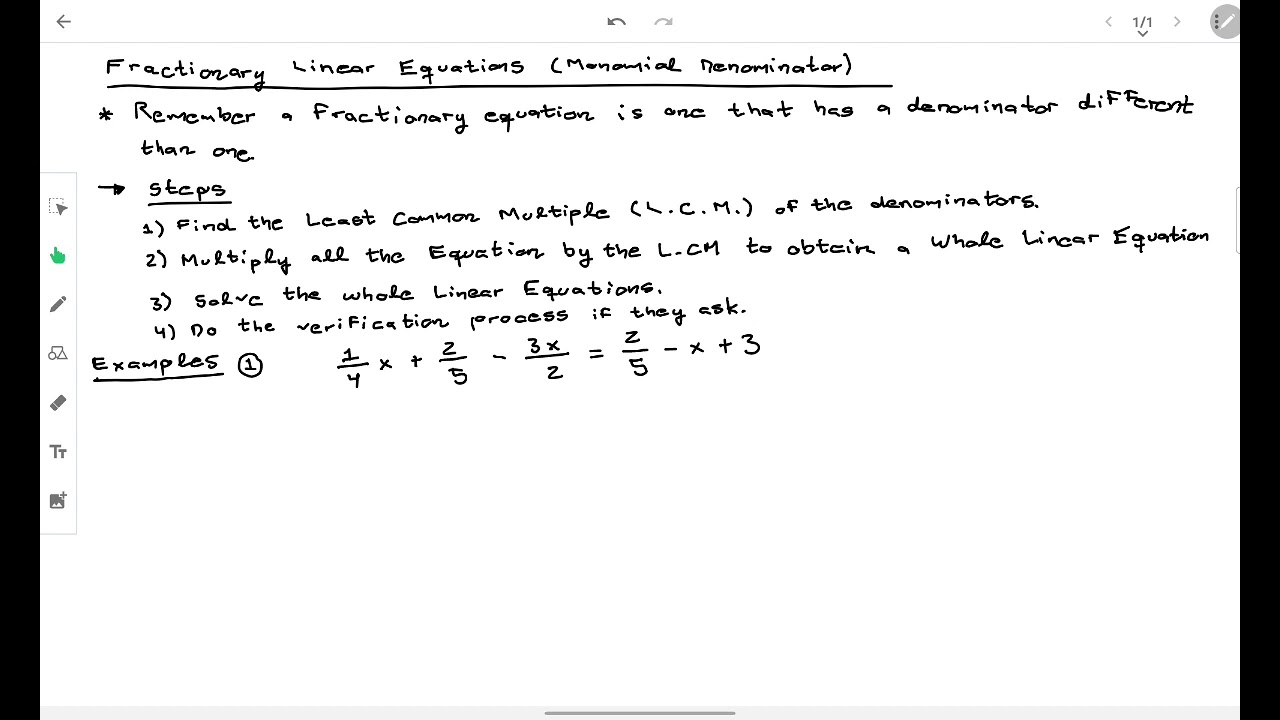 1/1
Fractionary Linear Equations (Monomial Denominator)
* Remember a Fractionary equation is one that has a denominator different
than one.
→ Steps
1) Find the Least Common Multiple (L.C.M.) of the denominators.
2) Multiply all the Equation by the L.CM to obtain a whole Linear Equation
3) Solve the whole Linear Equations.
4) Do the verification process if they ask.
Examples ① 1/4 x + 2/5 - 3x/2 = 2/5 - x + 3
Tт